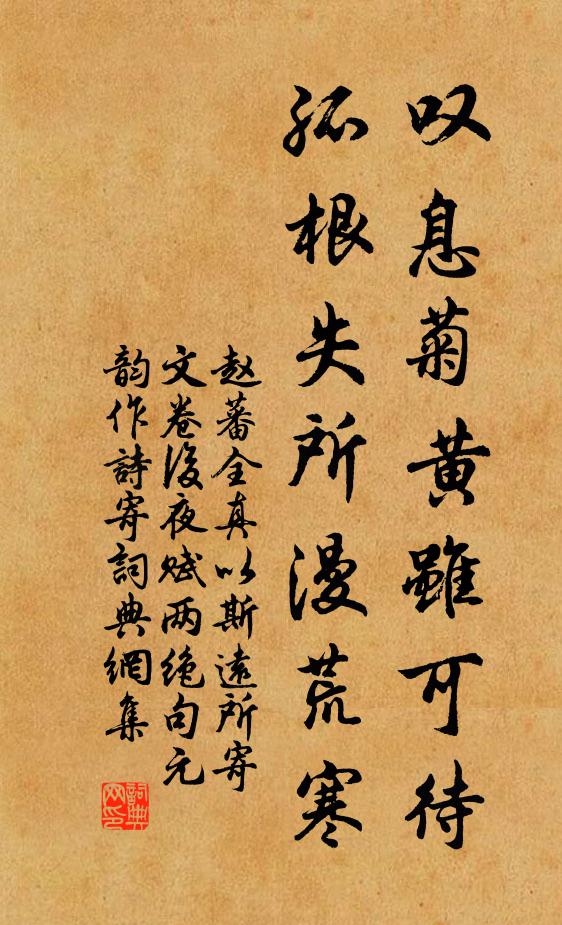 叹息菊黄雖可待
孤根失所漫荒寒
赵蕃全真以斯遠所寄
文卷後夜赋两绝句元
韵作詩寄詞典網集
詞典网印